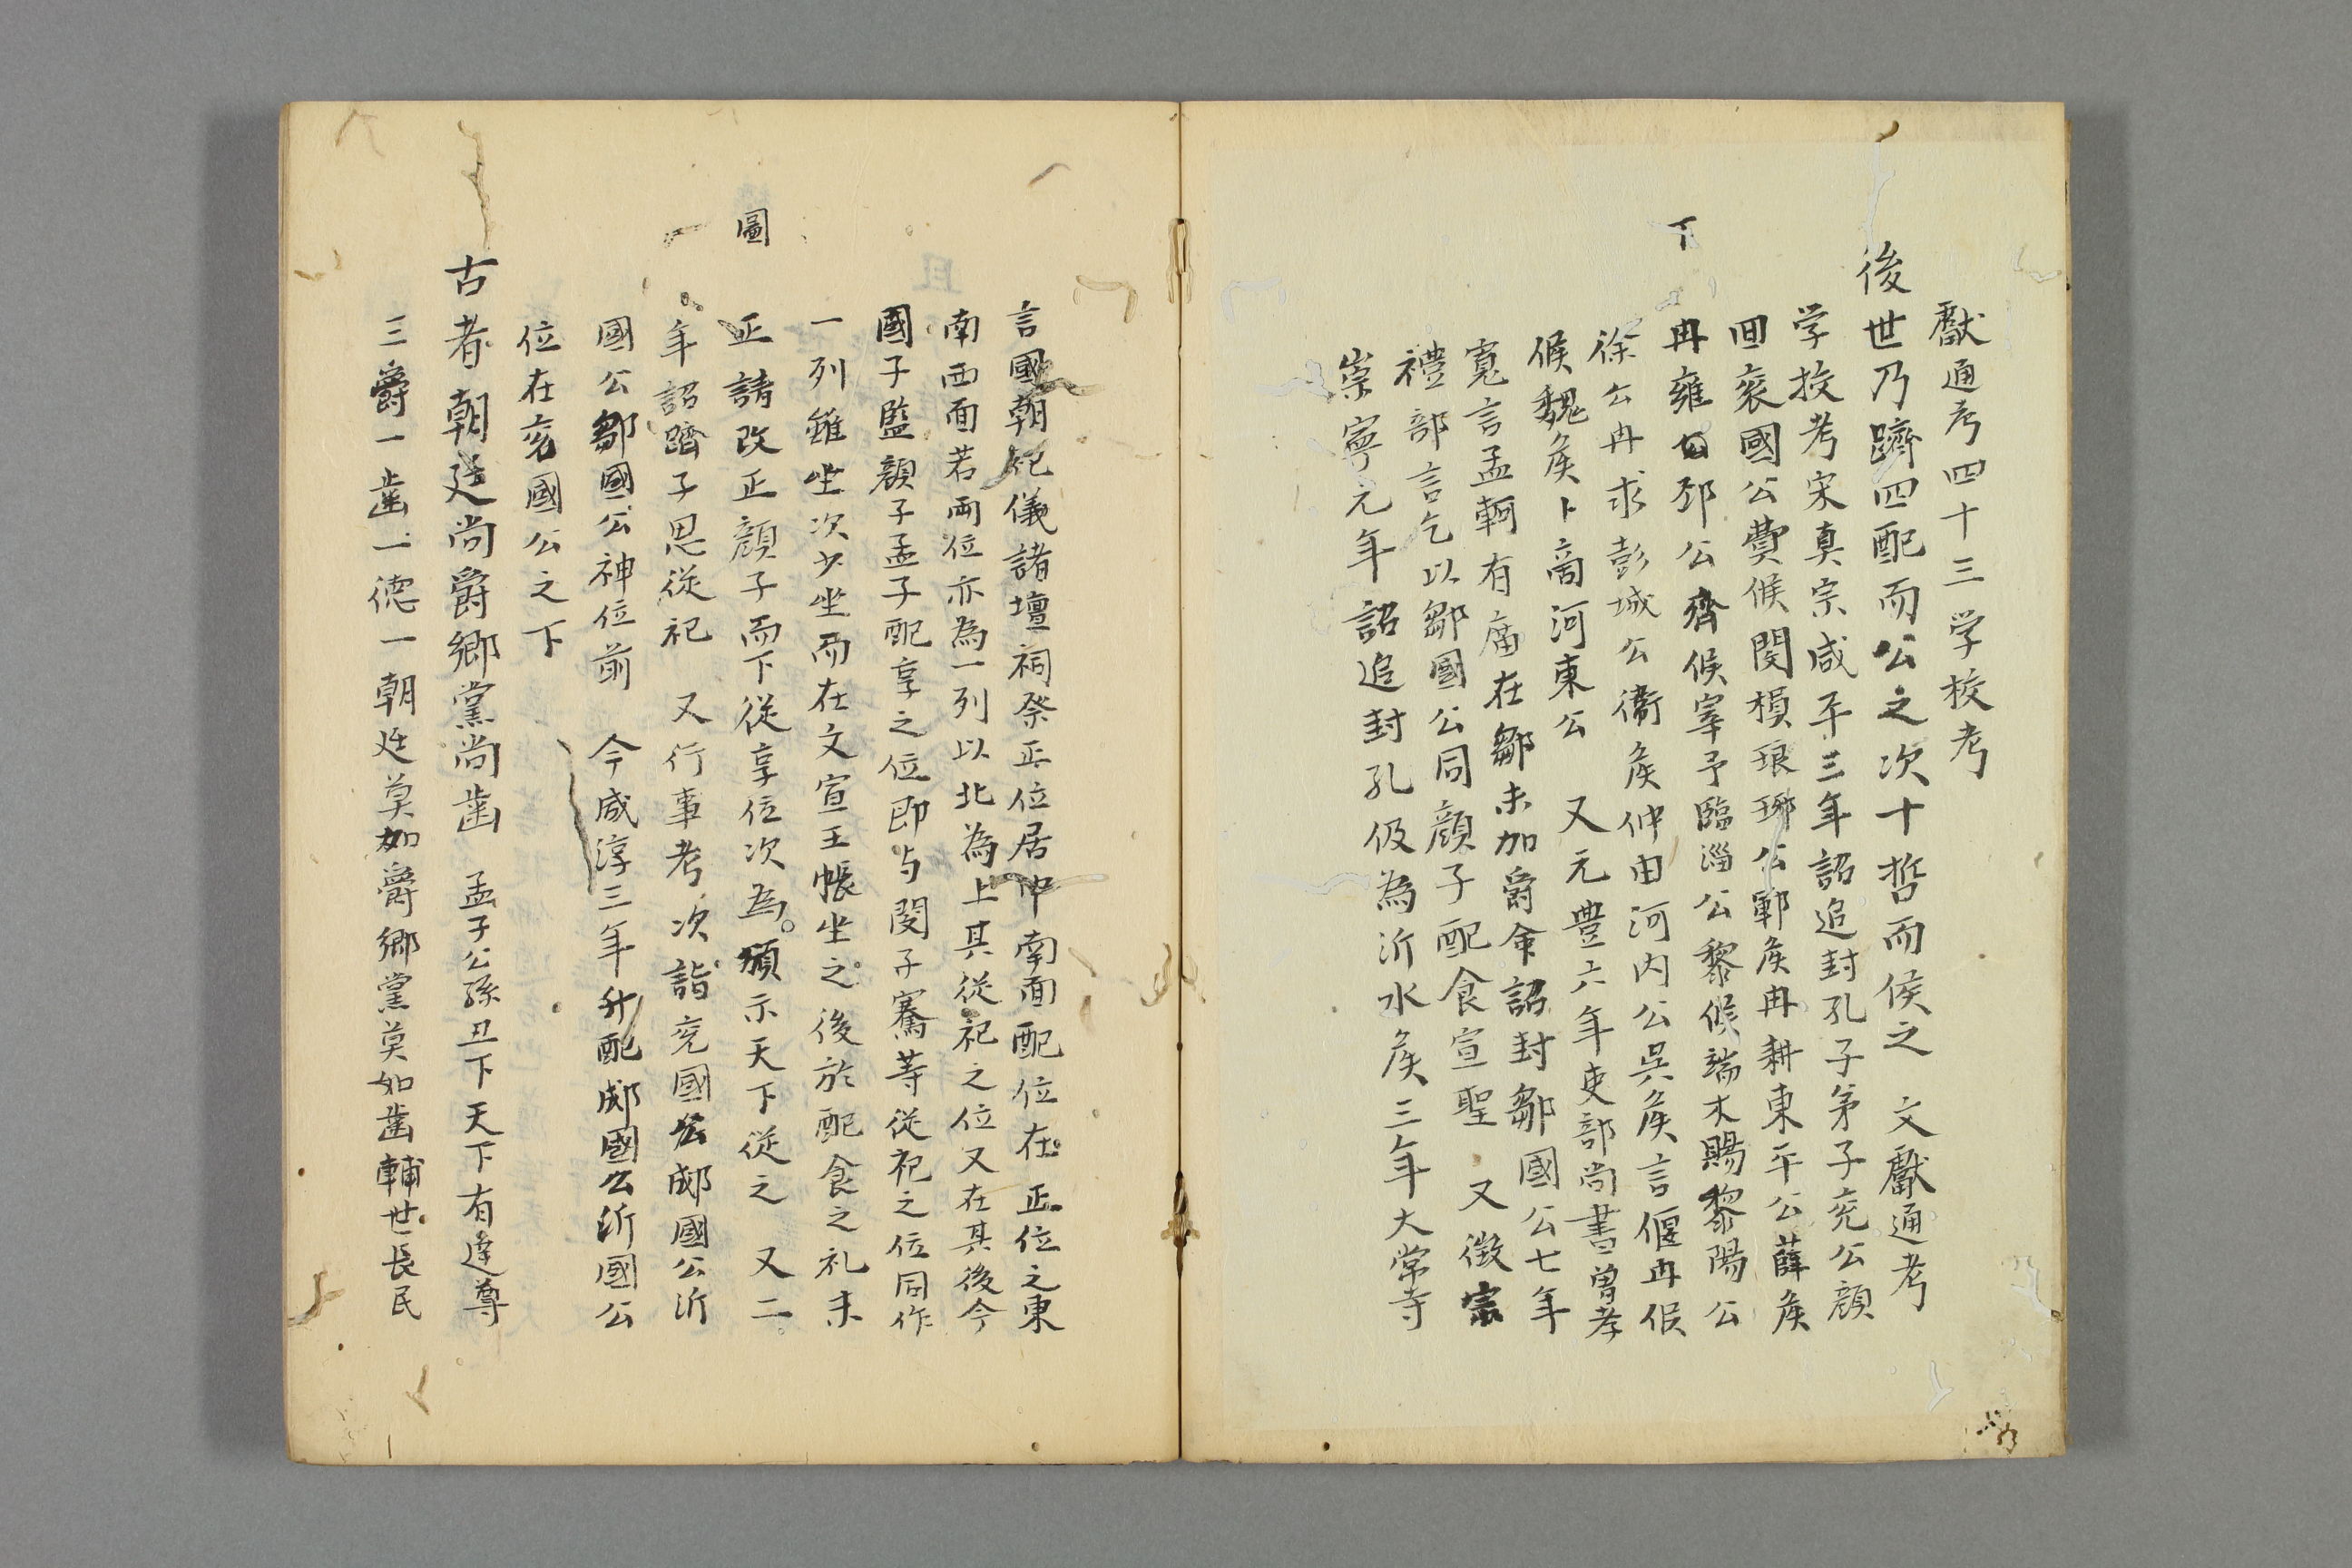 獻通考四十三学校考
後世乃躋四配而公之次十哲而侯之 文獻通考
学挍考宋真宗咸平三年詔追封孔子弟子兖公顔
回兖國公費候閔損琅琊公鄆矦冉耕東平公薛矦
下
冉雍下邳公齊候宰予臨淄公黎候端木賜黎陽公
徐公冉求彭城公衞矦仲由河内公吳矦言偃丹候
候魏矦卜商河東公 又元豊六年吏部尚書曽孝
寬言孟軻有廟在鄒未加爵命詔封鄒國公七年
禮部言乞以鄒國公同顔子配食宣聖 又徴宗
崇寧元年詔追封孔伋為沂水矦三年大常寺
言國朝祀儀諸壇祠祭正位居中南面配位在正位之東
南西面若兩位亦為一列以北為上其從祀之位又在其後今
國子監顔子孟子配享之位即与閔子騫等從祀之位同作
一列雖坐次少坐而在文宣王帳坐之後於配食之礼未
圖
正請改正顔子而下從享位次為頒示天下從之 又二
年詔躋子思從祀 又行事考次詣兖國公郕國公沂
國公鄒國公神位前 今咸淳三年升配郕國公沂國公
位在兖國公之下
古者朝廷尚爵鄉黨尚齒 孟子公孫丑下天下有達尊
三爵一齒一德一朝廷莫如爵鄉黨莫如齒輔世長民